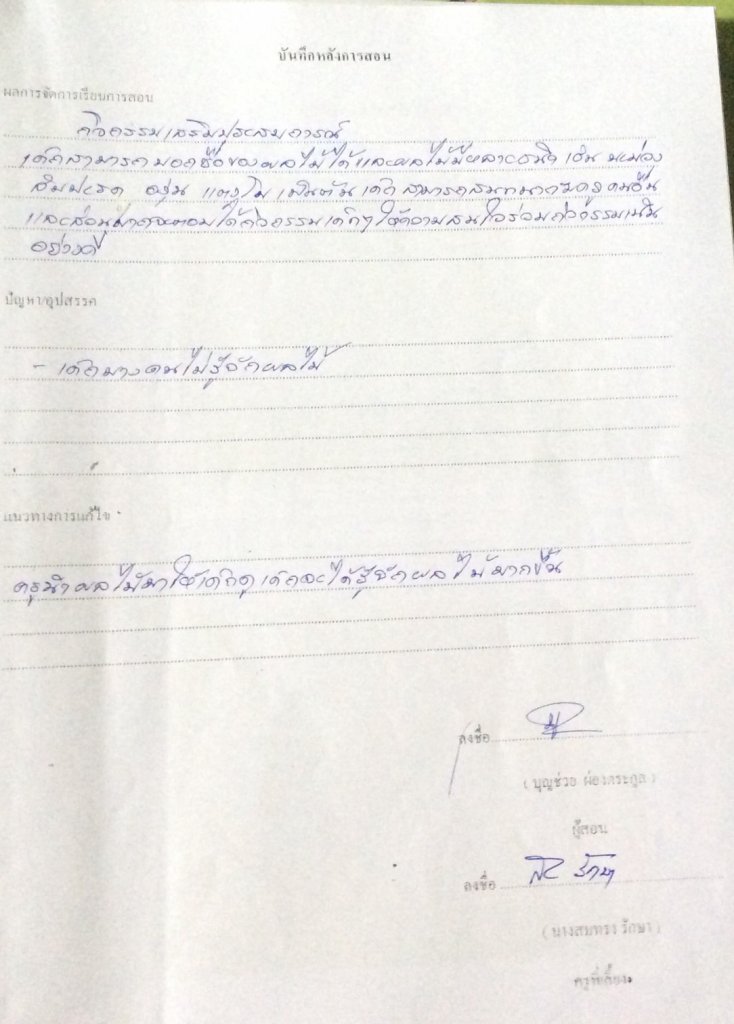 บันทึกหลังการสอน
ผลการจัดการเรียนการสอน
กิจกรรมเสริมประสบการณ์
เด็กสามารถบอกชื่อของผลไม้ได้และผลไม้มีหลายชนิด เช่น มะม่วง
สับปะรด องุ่น แตงโม เป็นต้น เด็กสามารถสนทนา
และ ได้กิจกรรมเด็กๆให้ความสนใจร่วมกิจกรรมเป็น
อย่างดี
ปัญหา/อุปสรรค
- เด็กบางคนไม่รู้จักผลไม้
แนวทางการแก้ไข
ครูนำผลไม้มาให้เด็กดูเด็กจะได้รู้จักผลไม้มากขึ้น
ลงชื่อ
( บุญช่วย ผ่องตระกูล )
ผู้สอน
ลงชื่อ รักษา
( นางสมทรง รักษา )
ครูพี่เลี้ยง